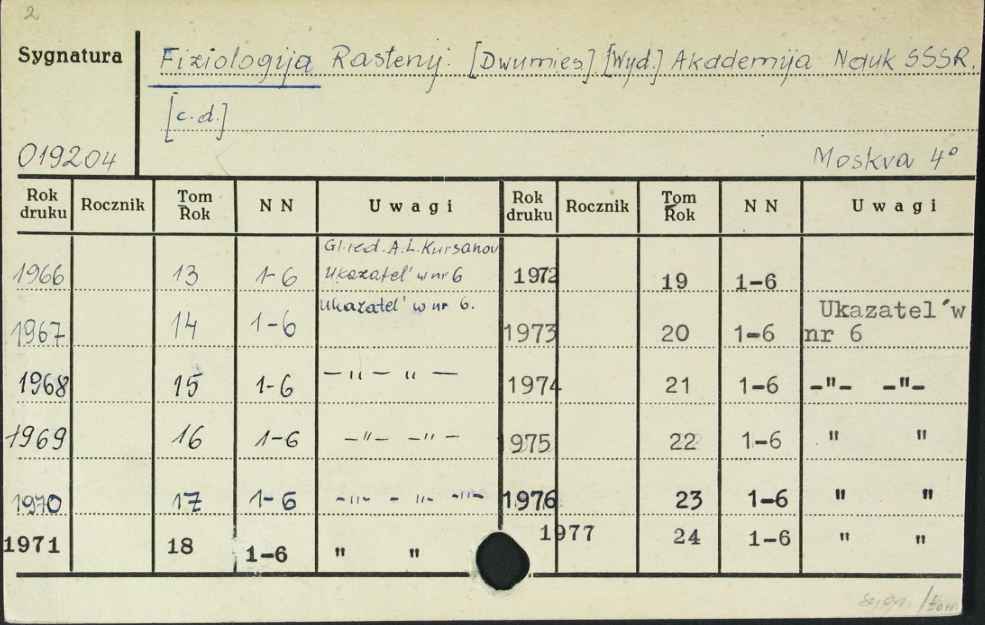 2
Sygnatura
Fiziologija Rastenij. [Dwumies] [Wyd.] Akademija Nauk SSSR.
[c.d.]
019204
Moskva 4°
Rok druku Rocznik Tom Rok N N Uwagi Rok druku Rocznik Tom Rok N N Uwagi
Gl. red. A.L. Kursanov
1966 13 1-6 Ukazatel' w nr 6 1972 19 1-6
Ukazatel' w nr 6.
1967 14 1-6 1973 20 1-6 Ukazatel'w
nr 6
1968 15 1-6 —"— " — 1974 21 1-6 -"- -"-
1969 16 1-6 —"— —"— 975 22 1-6 " "
1970 17 1-6 -"- - "- -"- 1976 23 1-6 " "
1971 18 1-6 " " 1977 24 1-6 " "